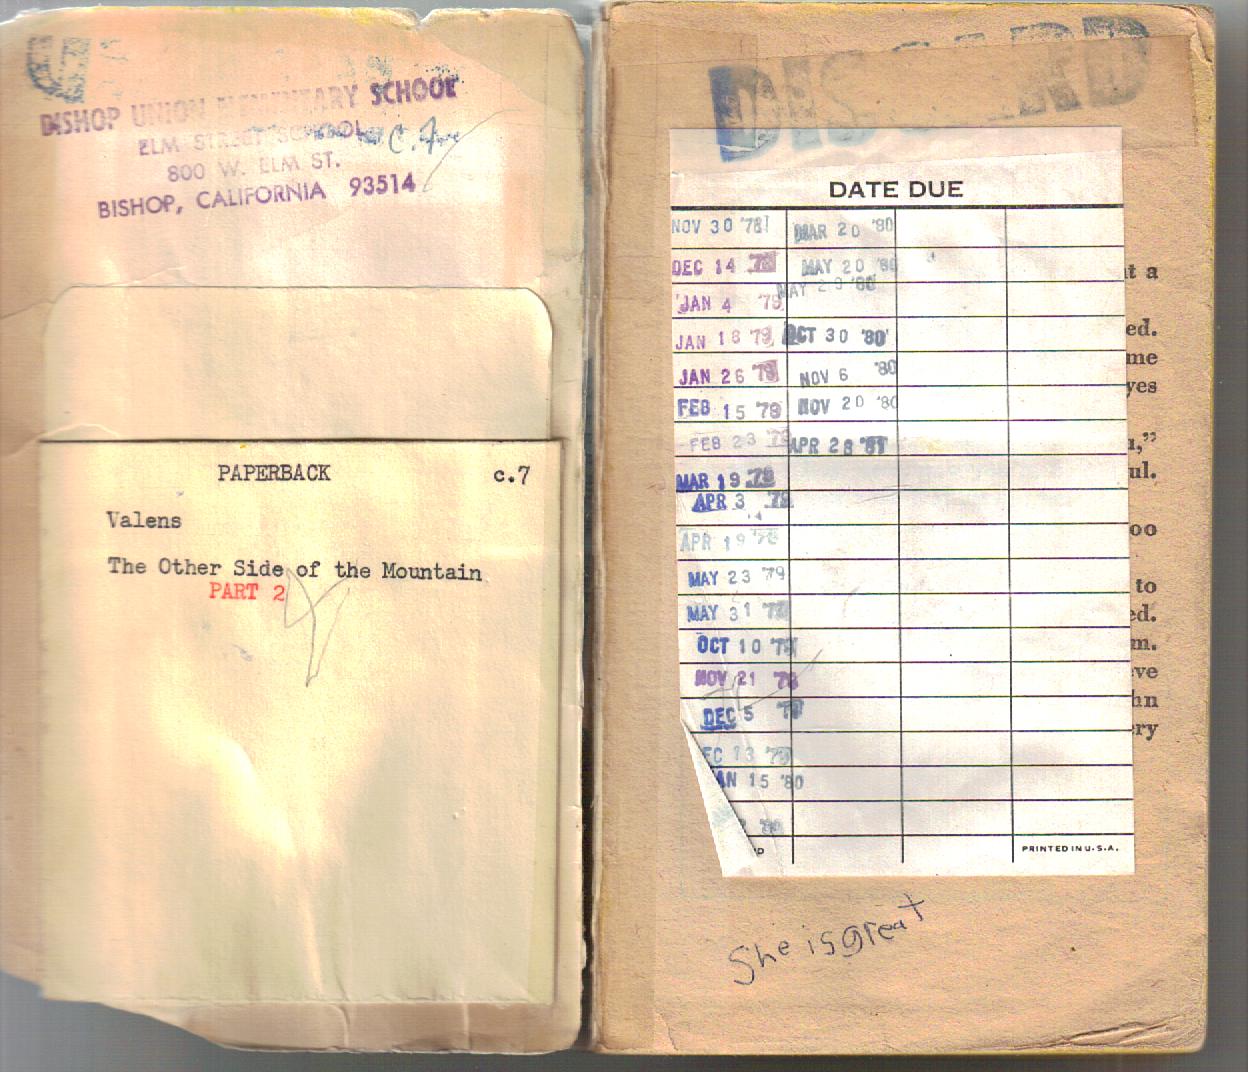 BISHOP UNION ELEMENTARY SCHOOL
ELM STREET SCHOOL
800 W. ELM ST.
BISHOP, CALIFORNIA 93514
PAPERBACK c.7
Valens
The Other Side of the Mountain
PART 2
DISCARD
DATE DUE
NOV 30 '78 MAR 20 '80
DEC 14 78 MAY 20 '80
MAY 20 '80
JAN 4 '79
JAN 18 '79 OCT 30 '80
JAN 26 '79 NOV 6 '80
FEB 15 '79 NOV 20 '80
FEB 23 '79 APR 28 '81
MAR 19 '79
APR 3 79
APR 19 '79
MAY 23 '79
MAY 31 '79
OCT 10 '79
NOV 21 79
DEC 5 79
EC 13 '79
AN 15 '80
'80
PRINTED IN U.S.A.
t a
ed.
me
yes
u,”
ul.
oo
to
ed.
m.
ve
hn
ry
She is great